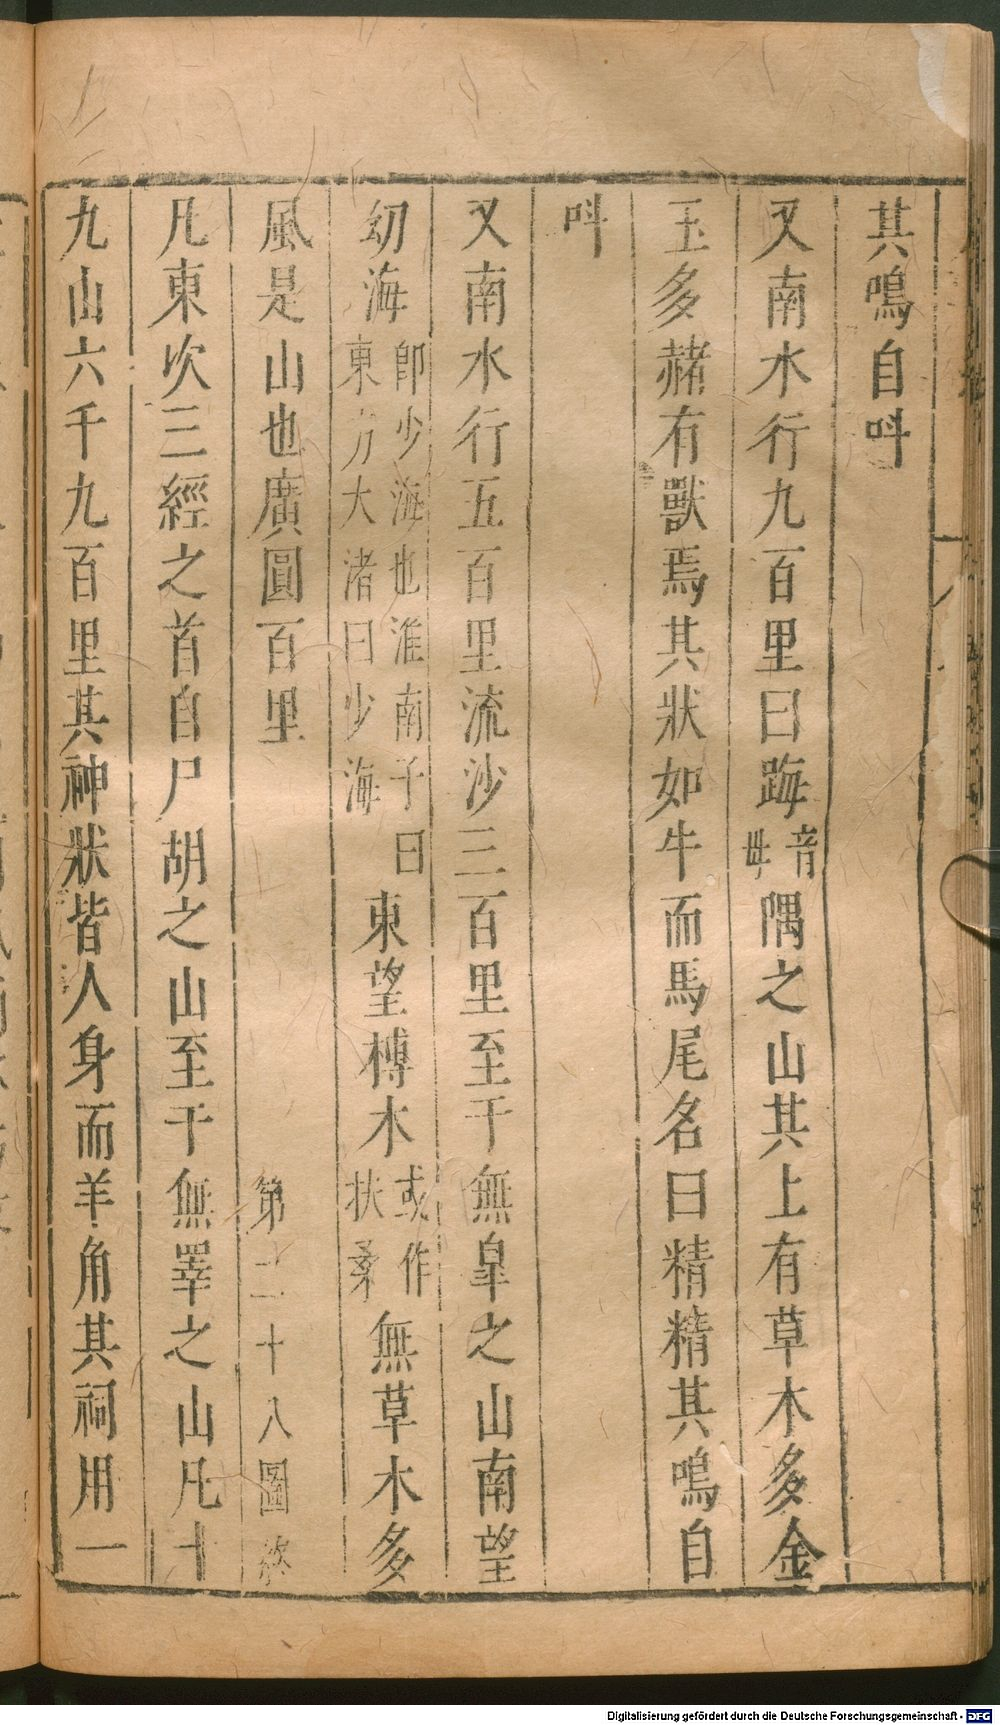 其鳴自呌
又南水行九百里曰踇音母隅之山其上有草木多金
玉多赭有獸焉其狀如牛而馬尾名曰精精其鳴自
呌
又南水行五百里流沙三百里至于無臯之山南望
幼海即少海也淮南子曰東方大渚曰少海東望榑木或作扶桑無草木多
風是山也廣圓百里 第二十八圖終
凡東次三經之首自尸胡之山至于無睪之山凡十
九山六千九百里其神狀皆人身而羊角其祠用一
Digitalisierung gefördert durch die Deutsche Forschungsgemeinschaft - DFG